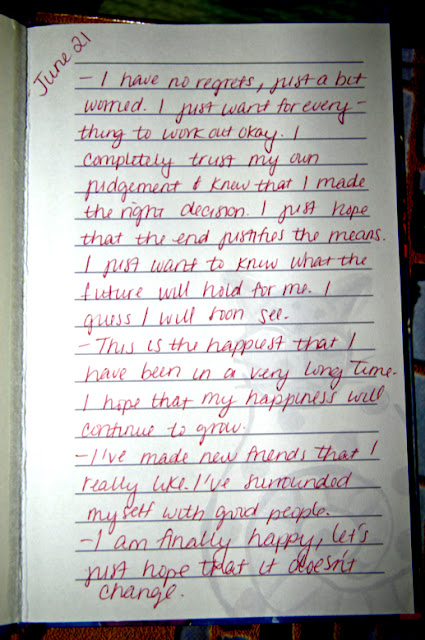 June 21
- I have no regrets, just a bit
worried. I just want for every-
thing to work out okay. I
completely trust my own
judgement & knew that I made
the right decision. I just hope
that the end justifies the means.
I just want to know what the
future will hold for me. I
guess I will soon see.
- This is the happiest that I
have been in a very long time.
I hope that my happiness will
continue to grow.
- I've made new friends that I
really like. I've surrounded
myself with good people.
- I am finally happy, let's
just hope that it doesn't
change.